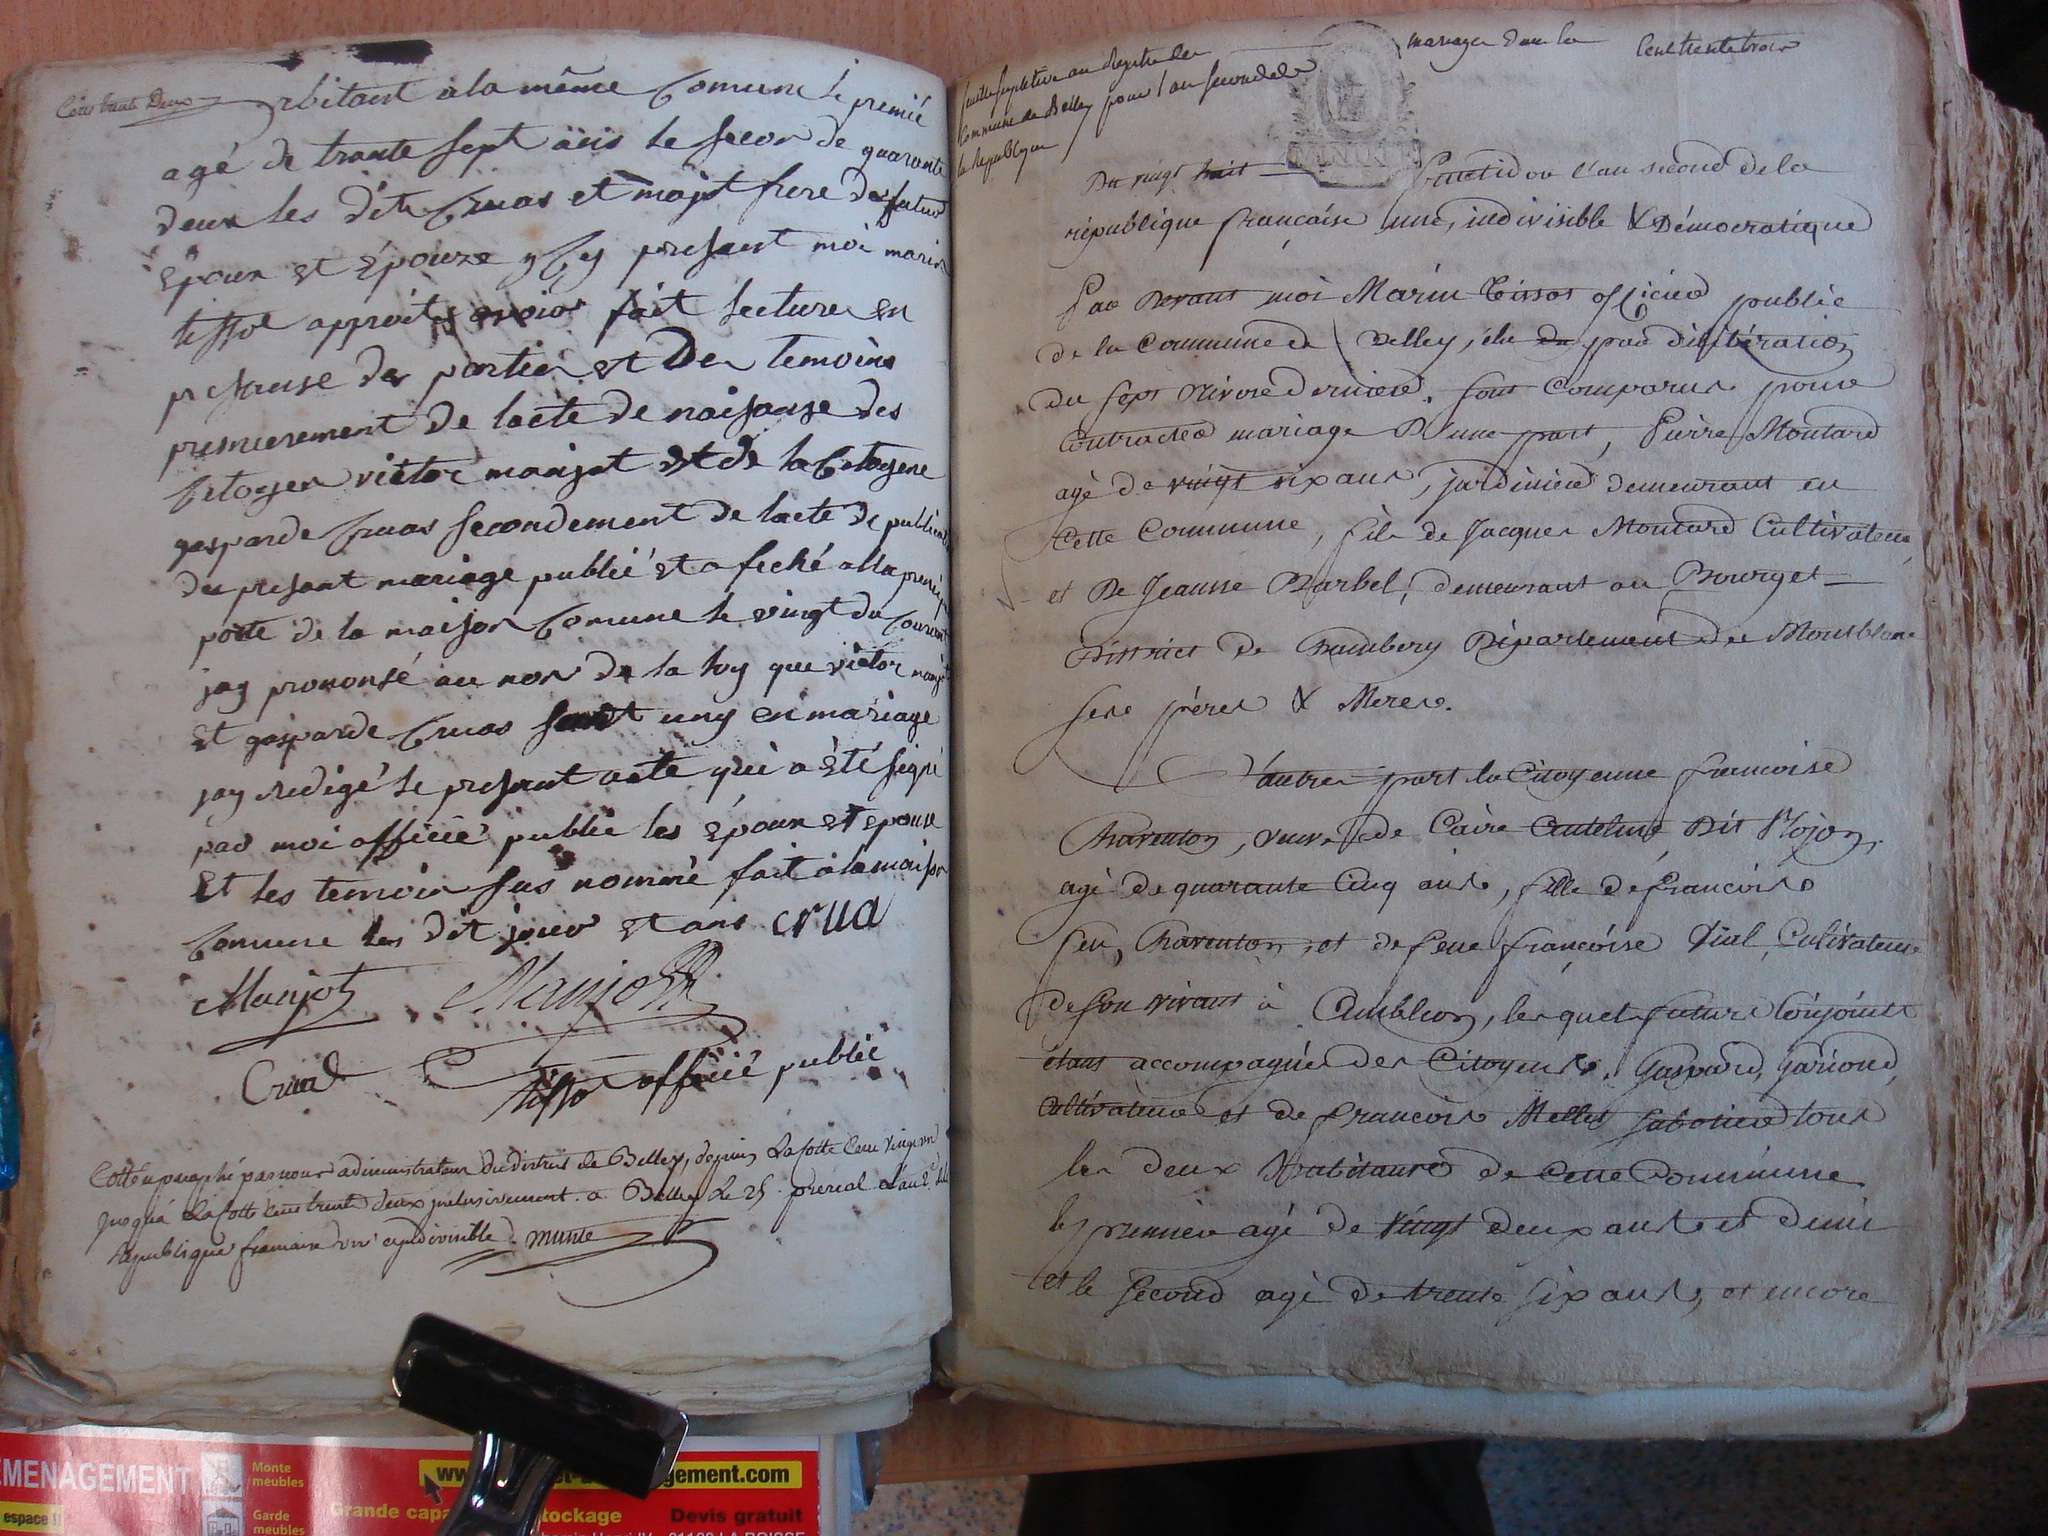 Cent trente Deux
abitant a la même Comune le premié
agé de trante sept ans le secon de quarante
deux les dits Cruas et manjot frere des futur
Epoux et Epouze y presant moi marin
tissot approit avoir fait lecture en
presanse des parties et Des temoins
premierement de lacte de naisanse des
Citoyen victor manjot et de la Citoyene
gasparde Cruas secondement de lacte de publica
du presant mariage publié et afiché a la
porte de la maison Comune le vingt du Courant
jay prononsé au non de la loy que victor manjot
Et gasparde Cruas sont uny en mariage
jay redigé le presant acte qui a été signé
par moi officié publie les époux et epouse
Et les temoin sus nommé fait a la maison
Comune les dit jour et ans crua
Manjot Manjot
Cruas
tissot officié publie
Cotté et paraphé par nous administrateur du district de Belley, depuis La Cotte Cent vingt un
jusqu'a La Cotte Cent trente deux inclusivement. a Belley Le 25 prerial L'an 2e de la
Republique francaise une et indivisible.
feuille supletive au Registre des mariages dans la
Commune de Belley pour l'an second de
la Republique
Cent trente trois
Du vingt huit fructidor l'an second de la
république française une, indivisible & Démocratique
Par Devant moi Marin Tissot officier public
de la Commune de Belley, élu par délibération
du sept Nivose dernier. sont Comparus pour
Contracter mariage D'une part, Pierre Moutard
agé de vingt six ans, jardinier demeurant en
Cette Commune, fils de Jacques Moutard Cultivateur
et De Jeanne Barbel, demeurant au Bourget
District de Chambery Département du Montblanc
ses pères & Meres.
D'autre part la Citoyenne francoise
Charenton, veuve de Caire Dit
agé de quarante Cinq ans, fille de francois
feu, Charenton, et de feue françoise Vial, Cultivateur
de son vivant à Amblion, les quels futurs Conjoints
étant accompagnés des Citoyens Gaspard,
Cultivateur et de francois Mellet Sabotier tous
les deux habitants de Cette Commune
le premier agé de vingt deux ans et demi
et le second agé de trente six ans, et encore
MENAGEMENT
espace !!
Monte
meubles
Garde
meubles
ww
gement.com
Grande capa
tockage
Devis gratuit